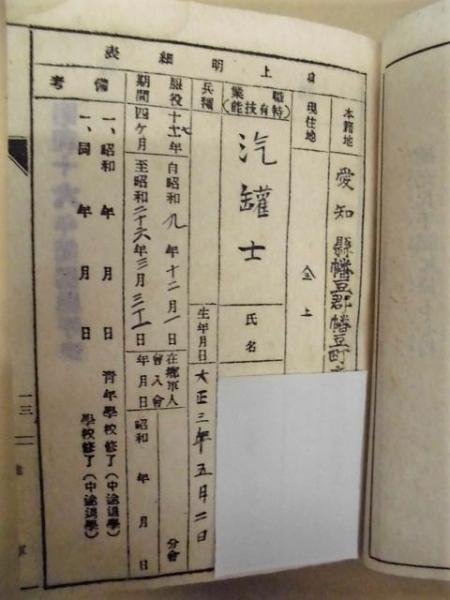 身上明細表
本籍地 愛知縣幡豆郡幡豆町
現住地 仝上
職業(特有技能) 汽罐士
氏名
兵種
生年月日 大正三年五月二日
服役期間 十六年四ケ月
自昭和九年十二月一日
至昭和二十六年三月三十一日
在鄉軍人會入會年月日 昭和 年 月 日 分會
備考
一、昭和 年 月 日 青年學校修了(中途退學)
一、同 年 月 日 學校修了(中途退學)